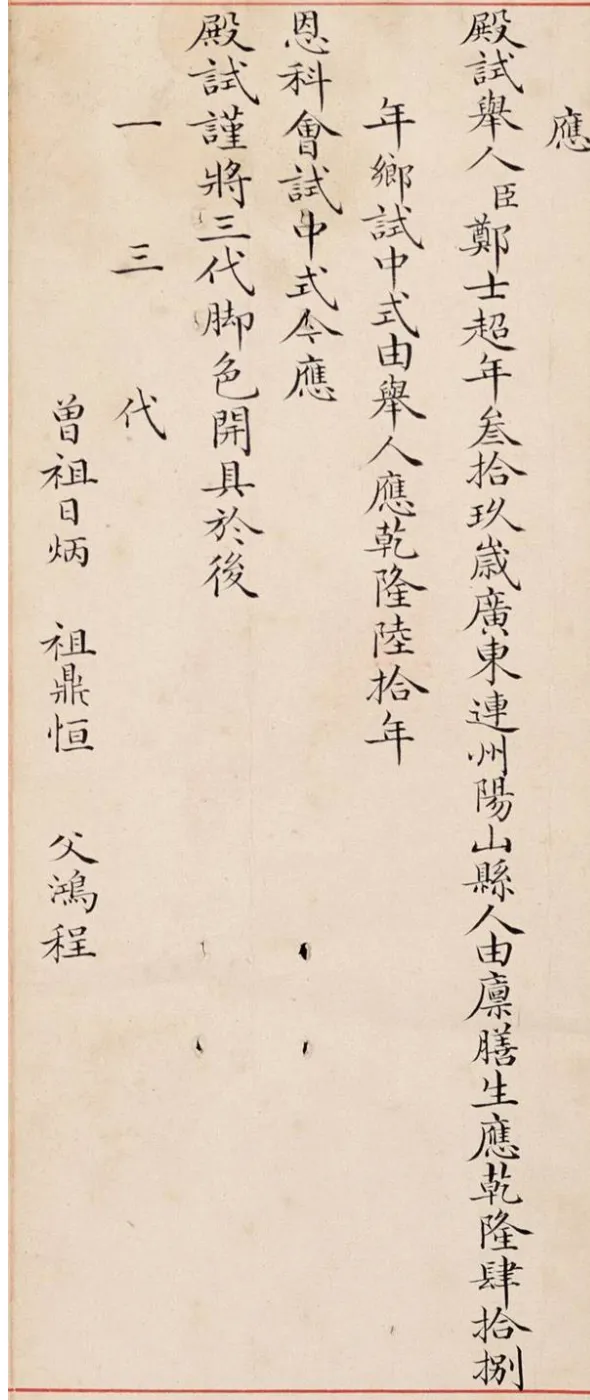 應
殿試舉人臣鄭士超年叁拾玖歲廣東連州陽山縣人由廪膳生應乾隆肆拾捌
年鄉試中式由舉人應乾隆陸拾年
恩科會試中式今應
殿試謹將三代脚色開具於後
一三代
曾祖日炳 祖鼎恒 父鴻程